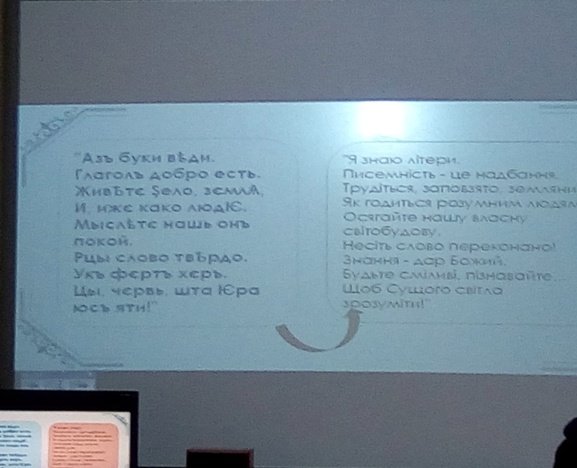 "Азъ буки вѣди.
Глаголъ добро есть.
Живѣте Ѕело, землѦ,
И, иже како людѤ.
Мыслѣте нашъ онъ
покой.
Рцы слово твѣрдо.
Укъ фєртъ хєръ.
Цы, червь, шта ѤРа
юсъ яти!"
"Я знаю літери.
Писемність - це надбання.
Трудіться, заповзято, земляни
Як годиться розумним людям
Осягайте нашу власну
світобудову.
Несіть слово переконано!
Знання - дар Божий.
Будьте сміливі, пізнавайте...
Щоб Сущого світла
зрозуміти!"